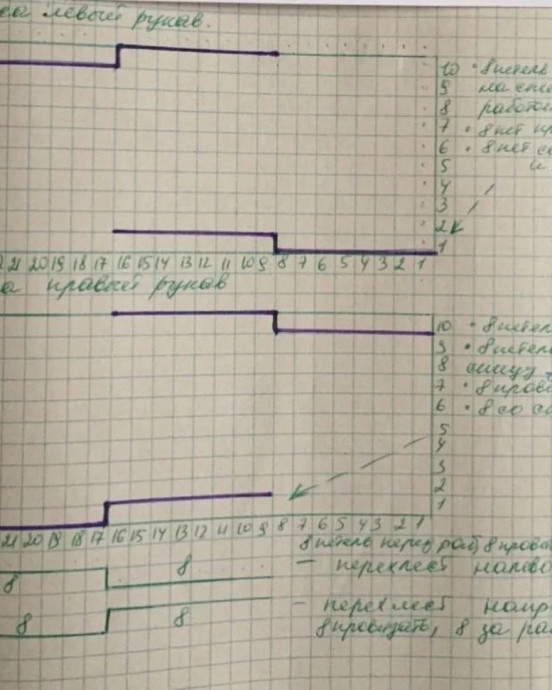 левый рукав.
10 • 8 петель
9 на спе
8 работы
7 • 8 пет
6 • 8 пет со
5 и
4
3
2к
1
21 20 19 18 17 16 15 14 13 12 11 10 9 8 7 6 5 4 3 2 1
а правый рукав
10 • 8 петел
9 • 8 петель
8 спицу
7 • 8 прови
6 • 8 со сп
5
4
3
2
1
21 20 19 18 17 16 15 14 13 12 11 10 9 8 7 6 5 4 3 2 1
8 петель перед раб, 8 провяз
8 8 — перехлест налево
— перехлест напр
8 8 8 провязать, 8 за ра